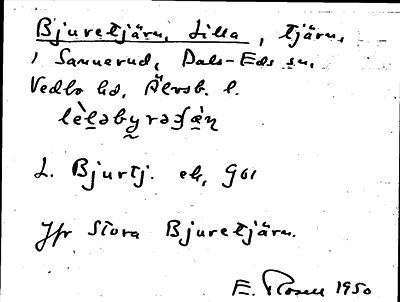 Bjuretjärn, Lilla, tjärn,
i Sannerud, Dals-Eds sn,
Vedbo hd, Älvsb. l.
lèləbyrəʃæ̀ṇ
L. Bjurtj. ek,
Jfr Stora Bjuretjärn.
E. Rosell 1950